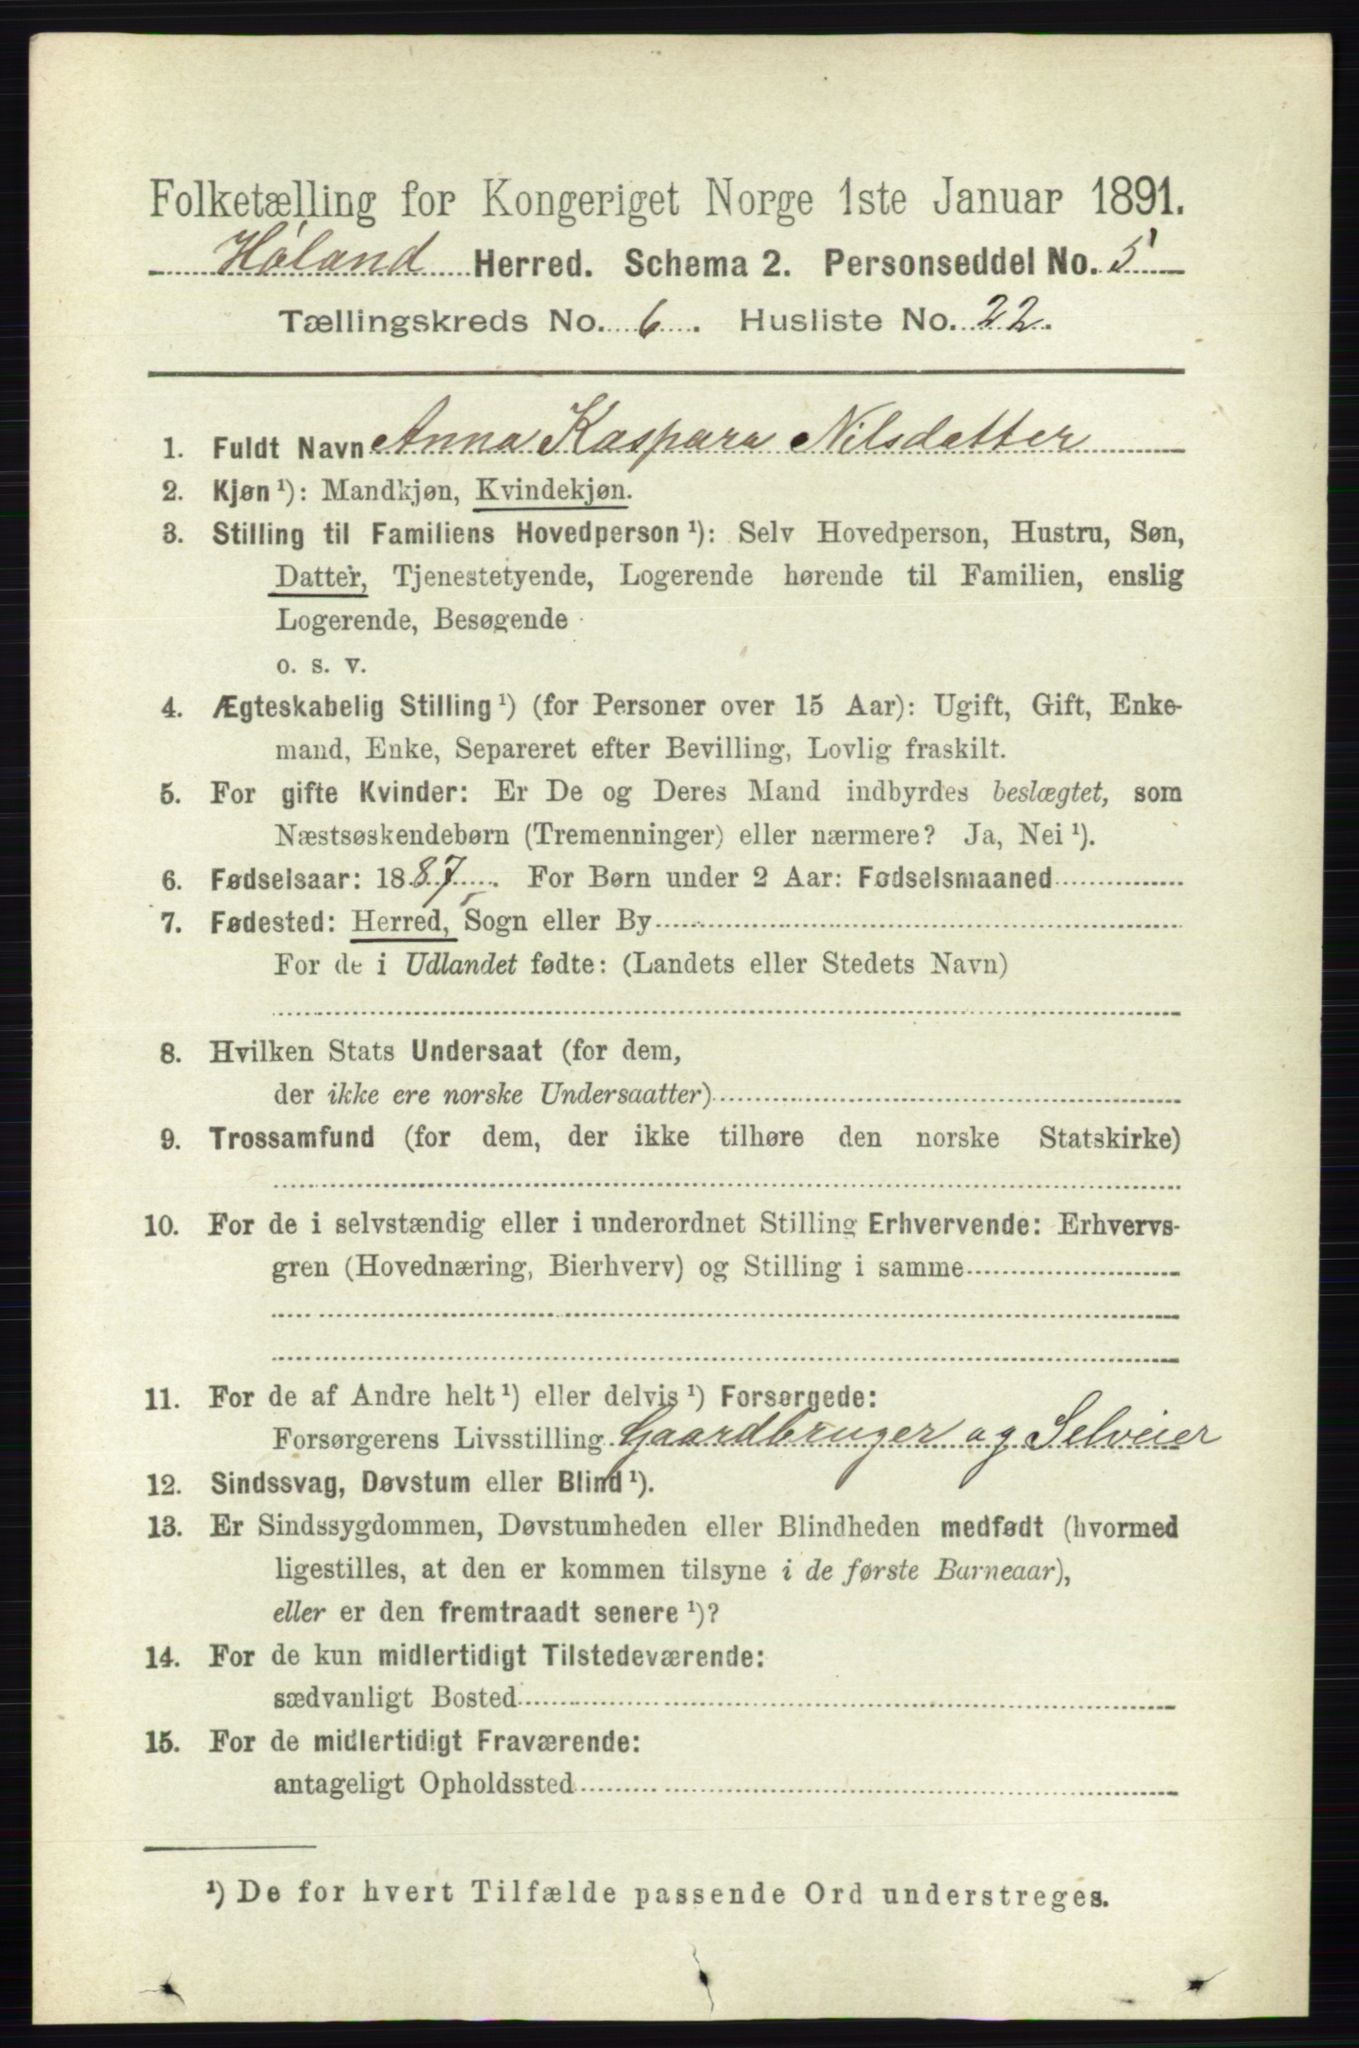 Folketælling for Kongeriget Norge 1ste Januar 1891.
Høland Herred. Schema 2. Personseddel No. 5
Tællingskreds No. 6. Husliste No. 22.
1. Fuldt Navn Anna Kaspara Nilsdatter
2. Kjøn ¹): Mandkjøn, Kvindekjøn.
3. Stilling til Familiens Hovedperson ¹): Selv Hovedperson, Hustru, Søn,
Datter, Tjenestetyende, Logerende hørende til Familien, enslig
Logerende, Besøgende
o. s. v.
4. Ægteskabelig Stilling ¹) (for Personer over 15 Aar): Ugift, Gift, Enke-
mand, Enke, Separeret efter Bevilling, Lovlig fraskilt.
5. For gifte Kvinder: Er De og Deres Mand indbyrdes beslægtet, som
Næstsøskendebørn (Tremenninger) eller nærmere? Ja, Nei ¹).
6. Fødselsaar: 1887. For Børn under 2 Aar: Fødselsmaaned
7. Fødested: Herred, Sogn eller By
For de i Udlandet fødte: (Landets eller Stedets Navn)
8. Hvilken Stats Undersaat (for dem,
der ikke ere norske Undersaatter)
9. Trossamfund (for dem, der ikke tilhøre den norske Statskirke)
10. For de i selvstændig eller i underordnet Stilling Erhvervende: Erhvervs-
gren (Hovednæring, Bierhverv) og Stilling i samme
11. For de af Andre helt ¹) eller delvis ¹) Forsørgede:
Forsørgerens Livsstilling Gaardbruger og Selveier
12. Sindssvag, Døvstum eller Blind ¹).
13. Er Sindssygdommen, Døvstumheden eller Blindheden medfødt (hvormed
ligestilles, at den er kommen tilsyne i de første Barneaar),
eller er den fremtraadt senere ¹)?
14. For de kun midlertidigt Tilstedeværende:
sædvanligt Bosted
15. For de midlertidigt Fraværende:
antageligt Opholdssted
¹) De for hvert Tilfælde passende Ord understreges.